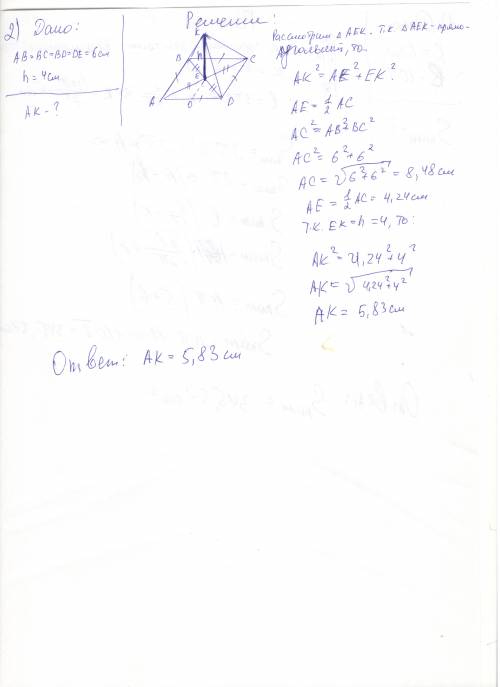 2) Дано:
AB=BC=BD=DE=6см
h=4см
AK-?
Решение:
K
B
h
C
E
A
O
D
Рассмотрим △ AEK. Т.к. △AEK-прямо-
угольный, то:
AK²=AE²+EK²
AE=1/2 AC
AC²=AB²+BC²
AC²=6²+6²
AC=√6²+6²=8,48см
AE=1/2 AC=4,24см
Т.к. EK=h=4, то:
AK²=4,24²+4²
AK=√4,24²+4²
AK=5,83см
Ответ: AK=5,83см